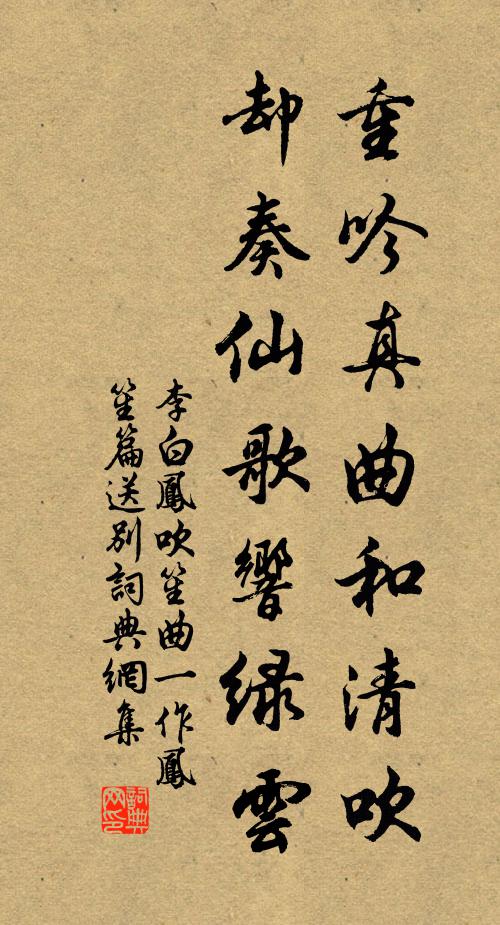 重吟真曲和清吹
却奏仙歌響綠雲
李白鳳吹笙曲一作鳳
笙篇送別詞典網集
詞典
网印